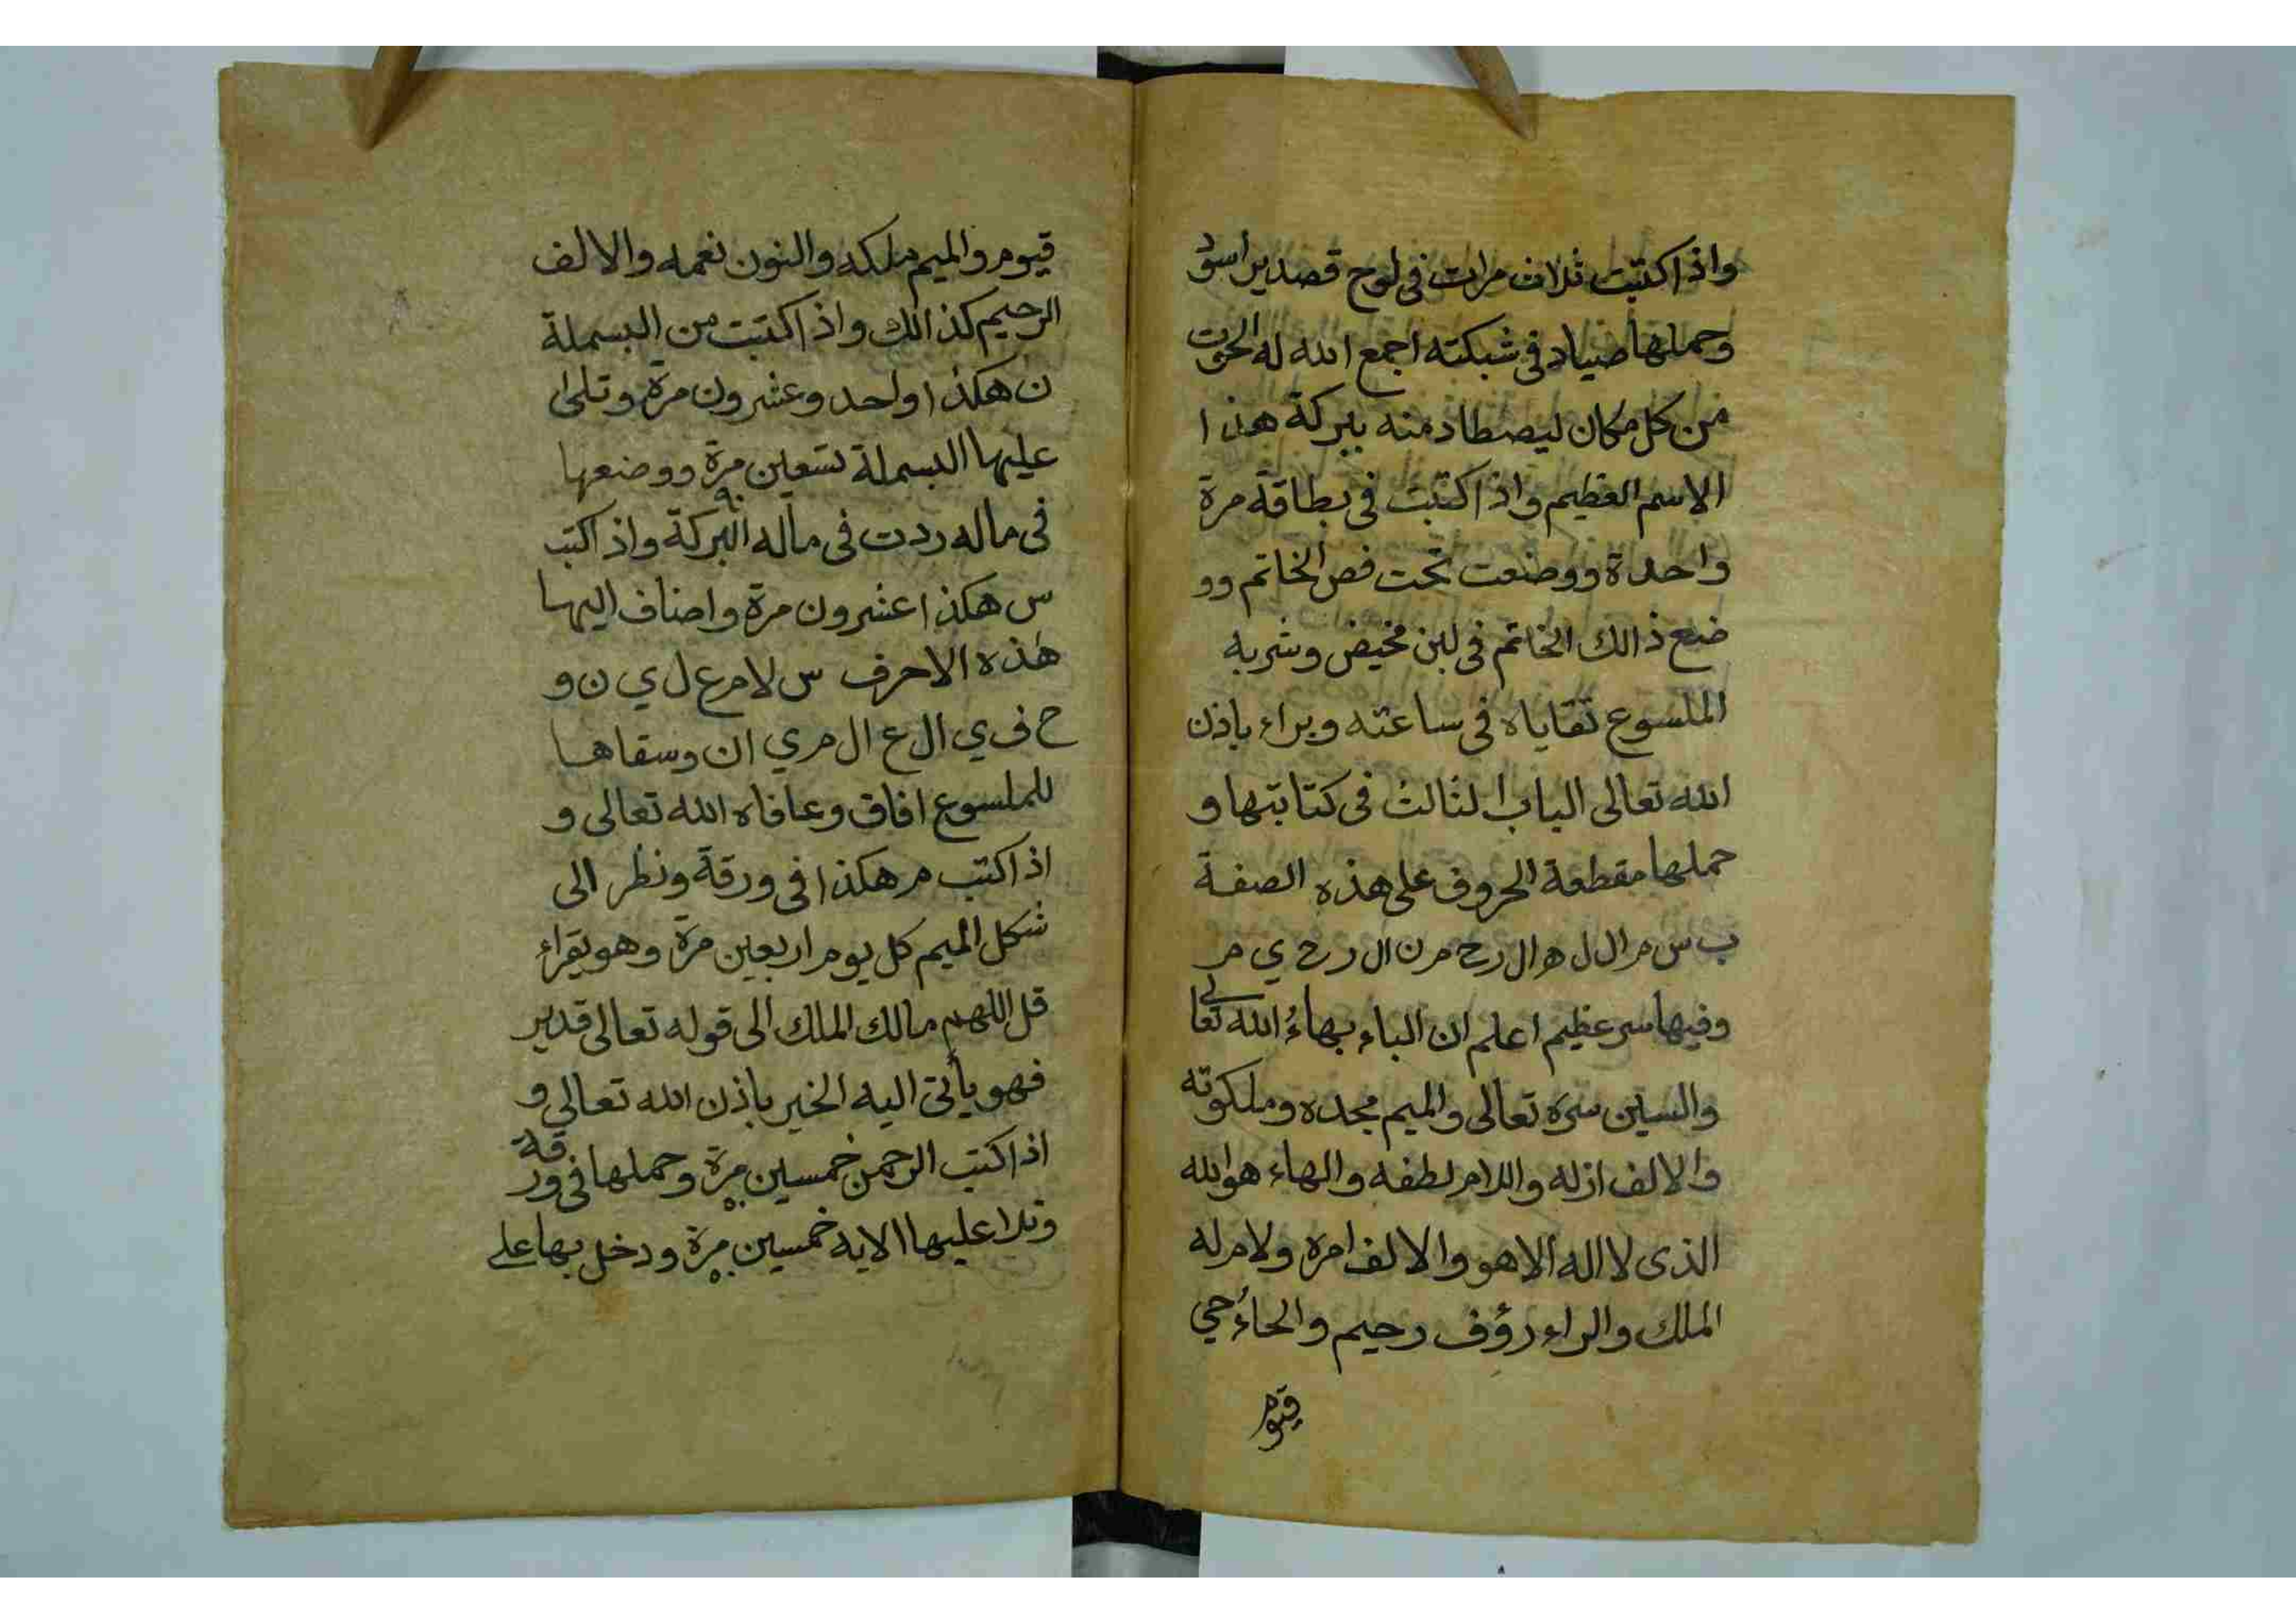 واذا كتبت ثلاث مرات فى لوح قصدير اسود
وحملها صياد فى شبكته اجمع الله له الحوت
من كل مكان ليصطاد منه ببركة هذا
الاسم العظيم واذا كتبت فى بطاقة مرة
واحدة ووضعت تحت فص الخاتم وو
ضع ذالك الخاتم فى لبن مخيض وشربه
الملسوع تقاياه فى ساعته وبراء باذن
الله تعالى الباب الثالث فى كتابتها و
حملها مقطعة الحروف على هذه الصفة
ب س م ال ل ه ال رح م ن ال رح ي م
وفيها سر عظيم اعلم ان الباء بهاءُ الله تعالى
والسين سره تعالى والميم مجده وملكوته
والالف ازله واللام لطفه والهاء هو الله
الذى لا اله الا هو والالف امره ولام له
الملك والراء رؤف رحيم والحاءُ حي
قيوم
قيوم والميم ملكه والنون نعمه والالف
الرحيم كذالك واذا كتبت من البسملة
ن هكذا واحد وعشرون مرة وتلى
عليها البسملة تسعين مرة ووضعها
٩٠
فى ماله ردت فى ماله البركة واذا كتب
س هكذا عشرون مرة واضاف اليها
هذه الاحرف س لا م ع ل ي ن و
ح ف ي ال ع ال م ي ان وسقاها
للملسوع افاق وعافاه الله تعالى و
اذا كتب م هكذا فى ورقة ونظر الى
شكل الميم كل يوم اربعين مرة وهو يقراء
قل اللهم مالك الملك الى قوله تعالى قدير
فهو يأتى اليه الخير باذن الله تعالى و
اذا كتب الرحمن خمسين مرة وحملها فى ورقة
٥٠
وتلا عليها الايه خمسين مرة ودخل بها على
٥٠